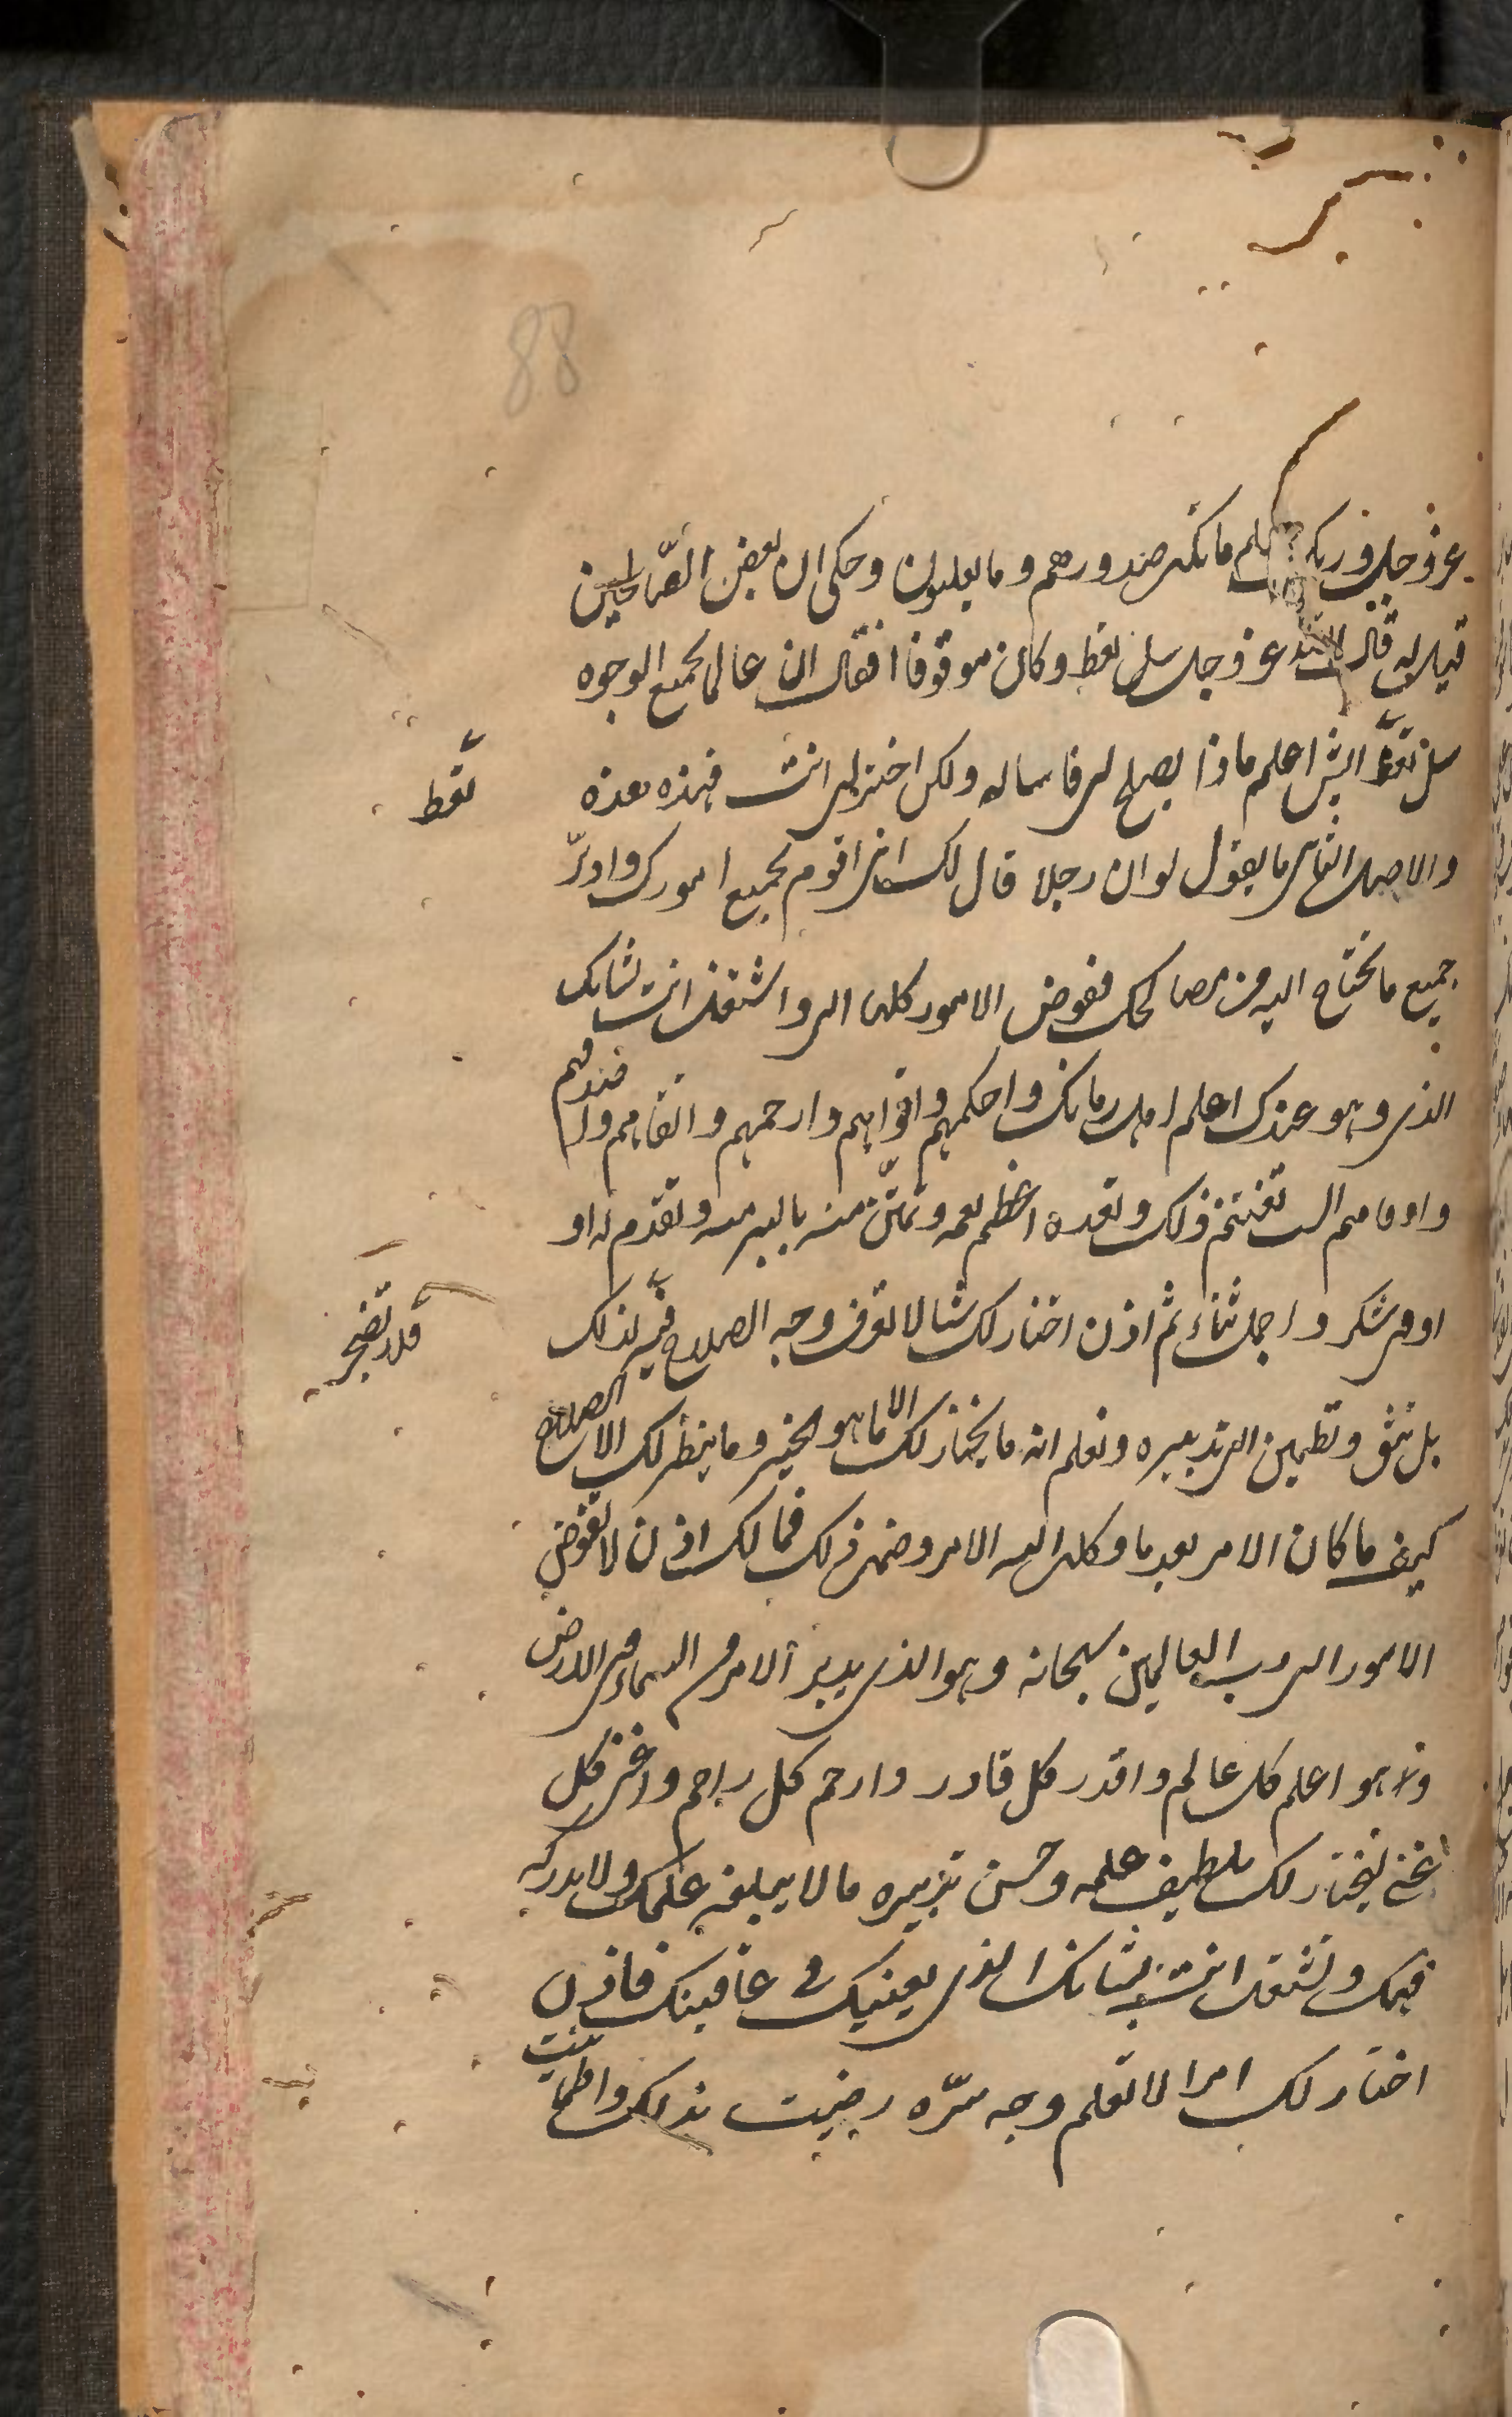 88
عز وجل وربك يعلم ما تكن صدورهم وما يعلنون وحكى ان بعض الصّالحين
قيل له قال الله عز وجل سل تعط وكان موقوفا فقال ان عالما بجميع الوجوه
سل تعط ايش اعلم ماذا يصلح لى فاساله ولكن اختر لى انت فهذه هذه
تعط
والاصل الثانى ما يقول لو ان رجلا قال لك انى اقوم بجميع امورك وادبّر
جميع ما تحتاج اليه من مصالحك ففوض الامور كلها الى واشتغل انت بشانك
الذى وهو عندك اعلم اهل زمانك واحكمهم واقواهم وارحمهم واتقاهم واصدقهم
واوفاهم الست تغتنم ذلك وتعده اعظم نعمه وتمتنّ منه بالبر منه وتقدم له او
اوفى شكر واجمل ثناء ثم اذن اختار لك شيئا لا تعرف وجه الصلاح فيه لذلك
فلا تضجر
بل تثق وتطمين الى تدبيره وتعلم انه ما يختار لك الا ما هو الخير وما ينظر لك الا الصلاح
كيف ما كان الامر بعد ما وكلت اليه الامر وضمن ذلك فما لك اذن لا تفوض
الامور الى رب العالمين سبحانه وهو الذى يدبر الامر من السماء الى الارض
وهو اعلم كل عالم واقدر كل قادر وارحم كل راحم واغنى كل
غنى ليختار لك بلطيف علمه وحسن تدبيره ما لا يبلغه علمك ولا يدركه
فهمك وتشتغل انت بشانك الذى يعنيك فى عاقبتك فاذن
اختار لك امرا لا تعلم وجه سرّه رضيت بذلك واطمانيت